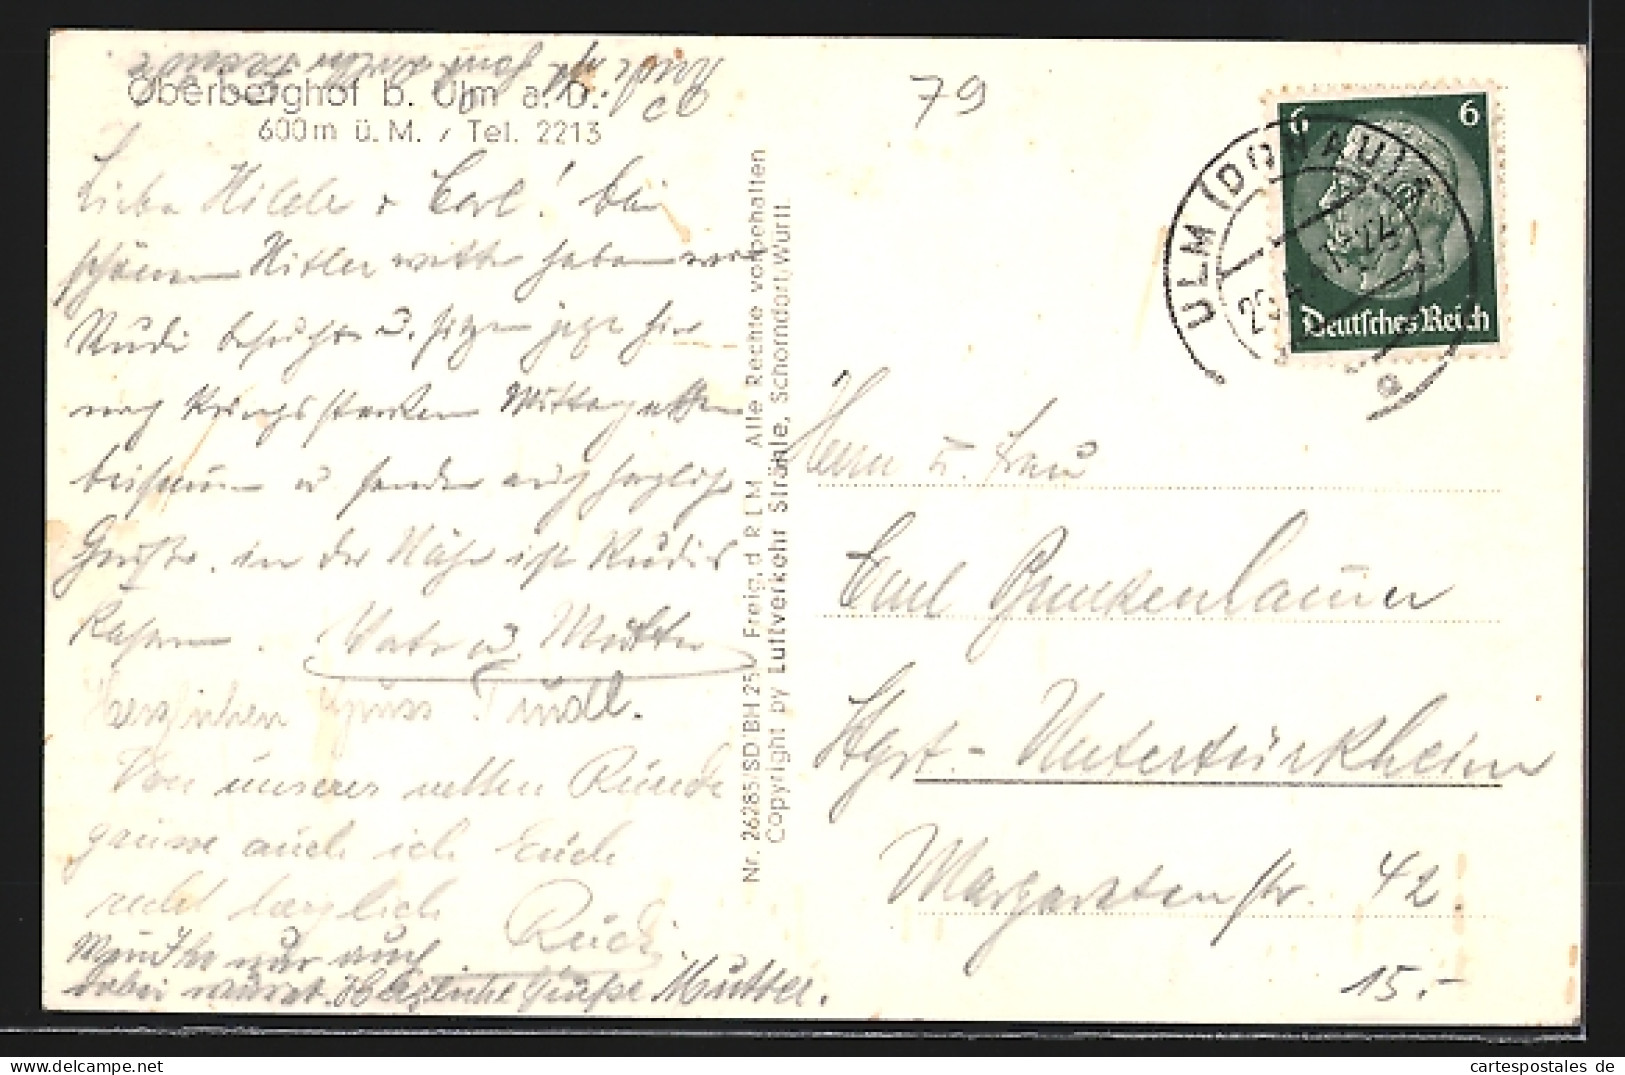 Oberberghof b. Ulm a. D.
600m ü. M. / Tel. 2213
Liebe Hilde + Carl! Bei
schönem Hitler wetter haben wir
Rudi besucht u. sitzen jetzt hier
nach Mittagessen
beisammen u senden euch herzliche
Grüße. in der Nähe ist Rudis
Kasern. Vater u. Mutter
Herzlichen Gruss Trudl.
Von unserer netten Runde
grüsse auch ich Euch
recht herzlich
Rudi
Wäret Ihr nur auch
dabei Herzliche Grüße Mutter.
Nr. 26285/SD/BH 25 Freig. d R L M. Alle Rechte vorbehalten
Copyright py Luftverkehr Strähle, Schorndorf/Württ.
79
6 6
Deutsches Reich
ULM (DONAU)
Herrn u. Frau
Emil
Stgt.- Untertürkheim
Margaretenstr. 42.
15.-
cartespostales de